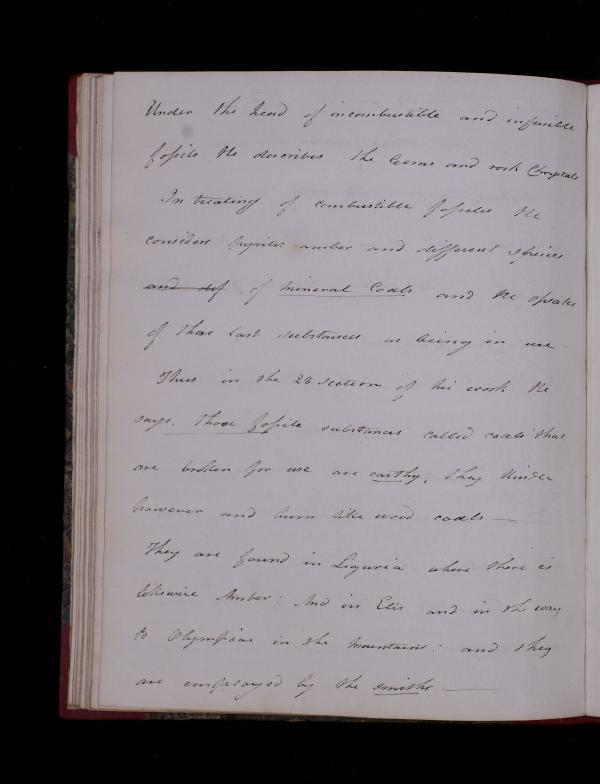 Under the head of incombustible and infusible
fossils He describes the Gems and rock Chrystals
In treating of combustible fossiles He
considers pyrites amber and different species
and dif of mineral Coals and He speaks
of these last substances as being in use -
Thus in the 28 section of his work He
says. Those fossile substances called coals that
are broken for use are earthy, they kindle
however and burn like wood coals —
They are found in Liguria where there is
likewise Amber: And in Elis and in the way
to Olympias in the mountains: and they
are employed by the smiths —